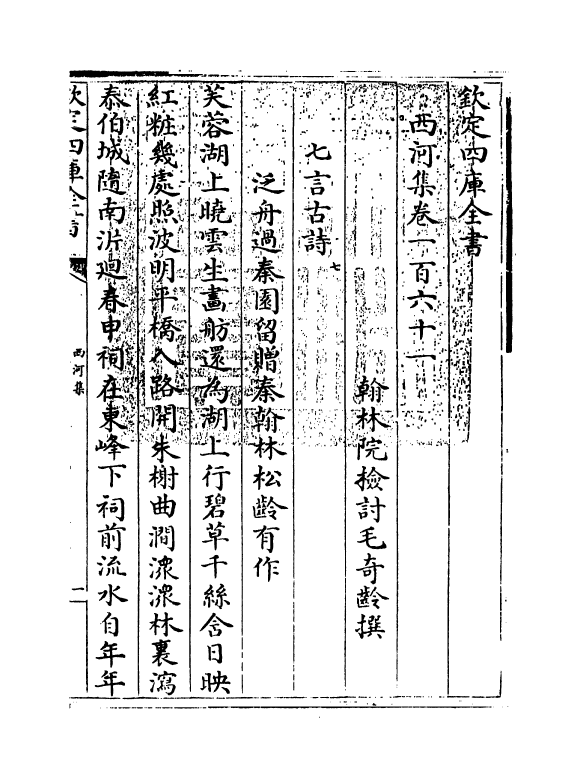 欽定四庫全書
西河集卷一百六十一
翰林院檢討毛奇齡撰
七言古詩七
泛舟過秦園留贈秦翰林松齡有作
芙蓉湖上曉雲生畵舫還為湖上行碧草千絲含日映
紅粧幾處照波明平橋入路開朱榭曲澗潀潀林裏瀉
泰伯城隨南沂廻春申祠在東峰下祠前流水自年年
欽定四庫全書
西河集
一